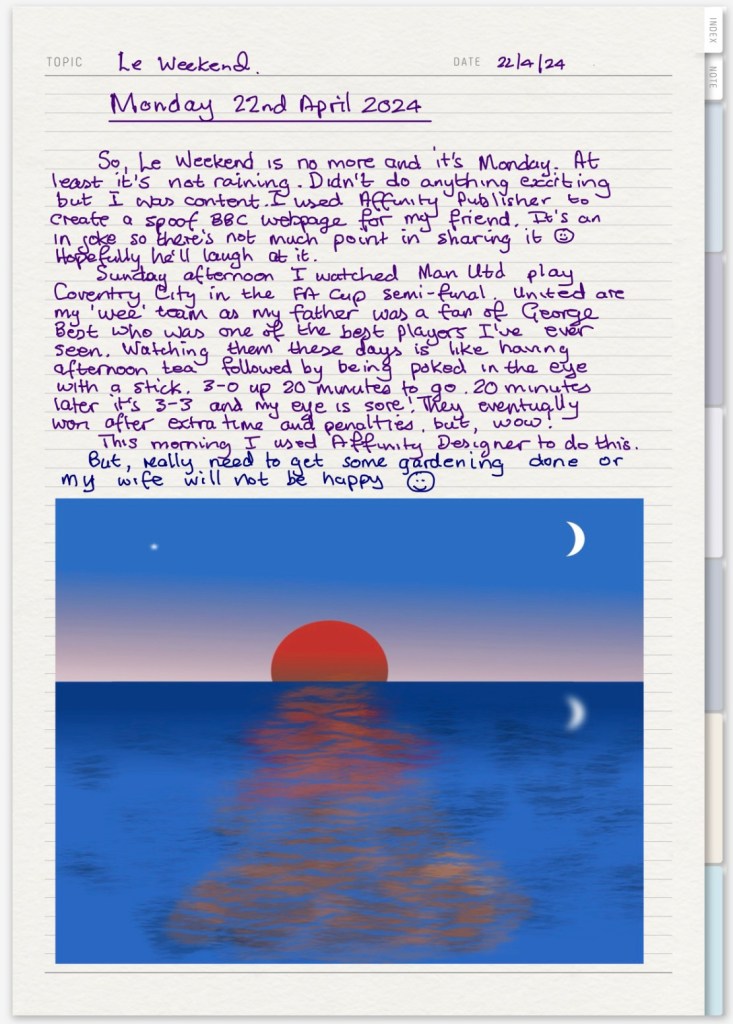 INDEX
NOTE
TOPIC Le Weekend. DATE 22/4/24
Monday 22nd April 2024
So, Le Weekend is no more and it's Monday. At
least it's not raining. Didn't do anything exciting
but I was content. I used Affinity Publisher to
create a spoof BBC webpage for my friend. It's an
in joke so there's not much point in sharing it ☺
Hopefully he'll laugh at it.
Sunday afternoon I watched Man Utd play
Coventry City in the FA Cup semi-final. United are
my 'wee' team as my father was a fan of George
Best who was one of the best players I've ever
seen. Watching them these days is like having
afternoon tea followed by being poked in the eye
with a stick. 3-0 up 20 minutes to go. 20 minutes
later it's 3-3 and my eye is sore! They eventually
won after extra time and penalties, but, wow!
This morning I used Affinity Designer to do this.
But, really need to get some gardening done or
my wife will not be happy ☺